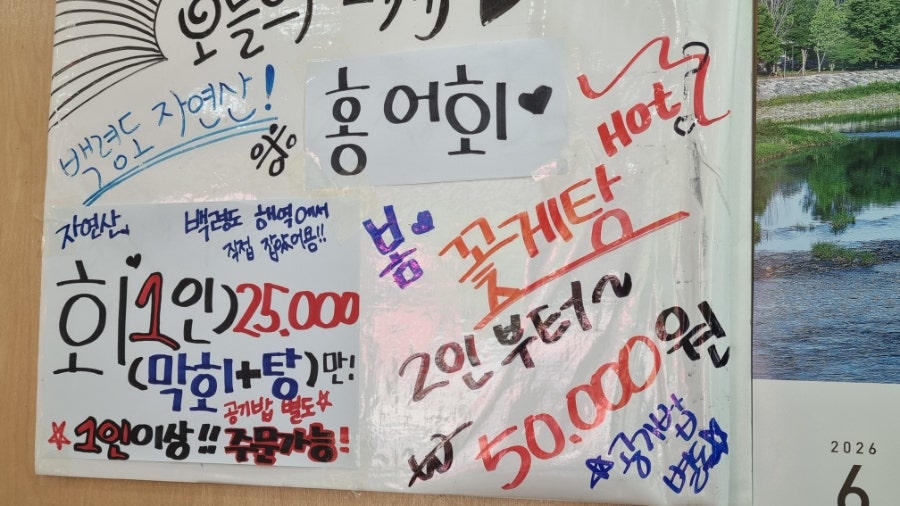 오늘의
백령도 자연산!
홍어회
Hot
자연산 백령도 해역에서
직접 잡았어용!!
회 1인) 25.000
(막회+탕)만!
공기밥 별도
1인이상!! 주문가능!
봄 꽃게탕
2인부터~
₩ 50.000원
공기밥
별도
2026
6